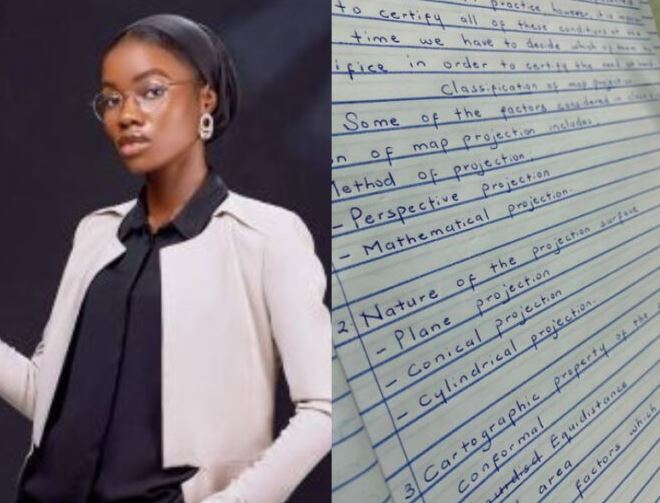 practice however it is
to certify all of these conditions at the
time we have to decide which of them to
ifice in order to certify the need at hand
Classification of map projection
Some of the factors considered in
n of map projection includes:
Method of projection.
- Perspective projection
- Mathematical projection.
2. Nature of the projection surface
- Plane projection
- Conical projection
- Cylindrical projection.
3. Cartographic property of the
conformal
Equidistance
area
factors which